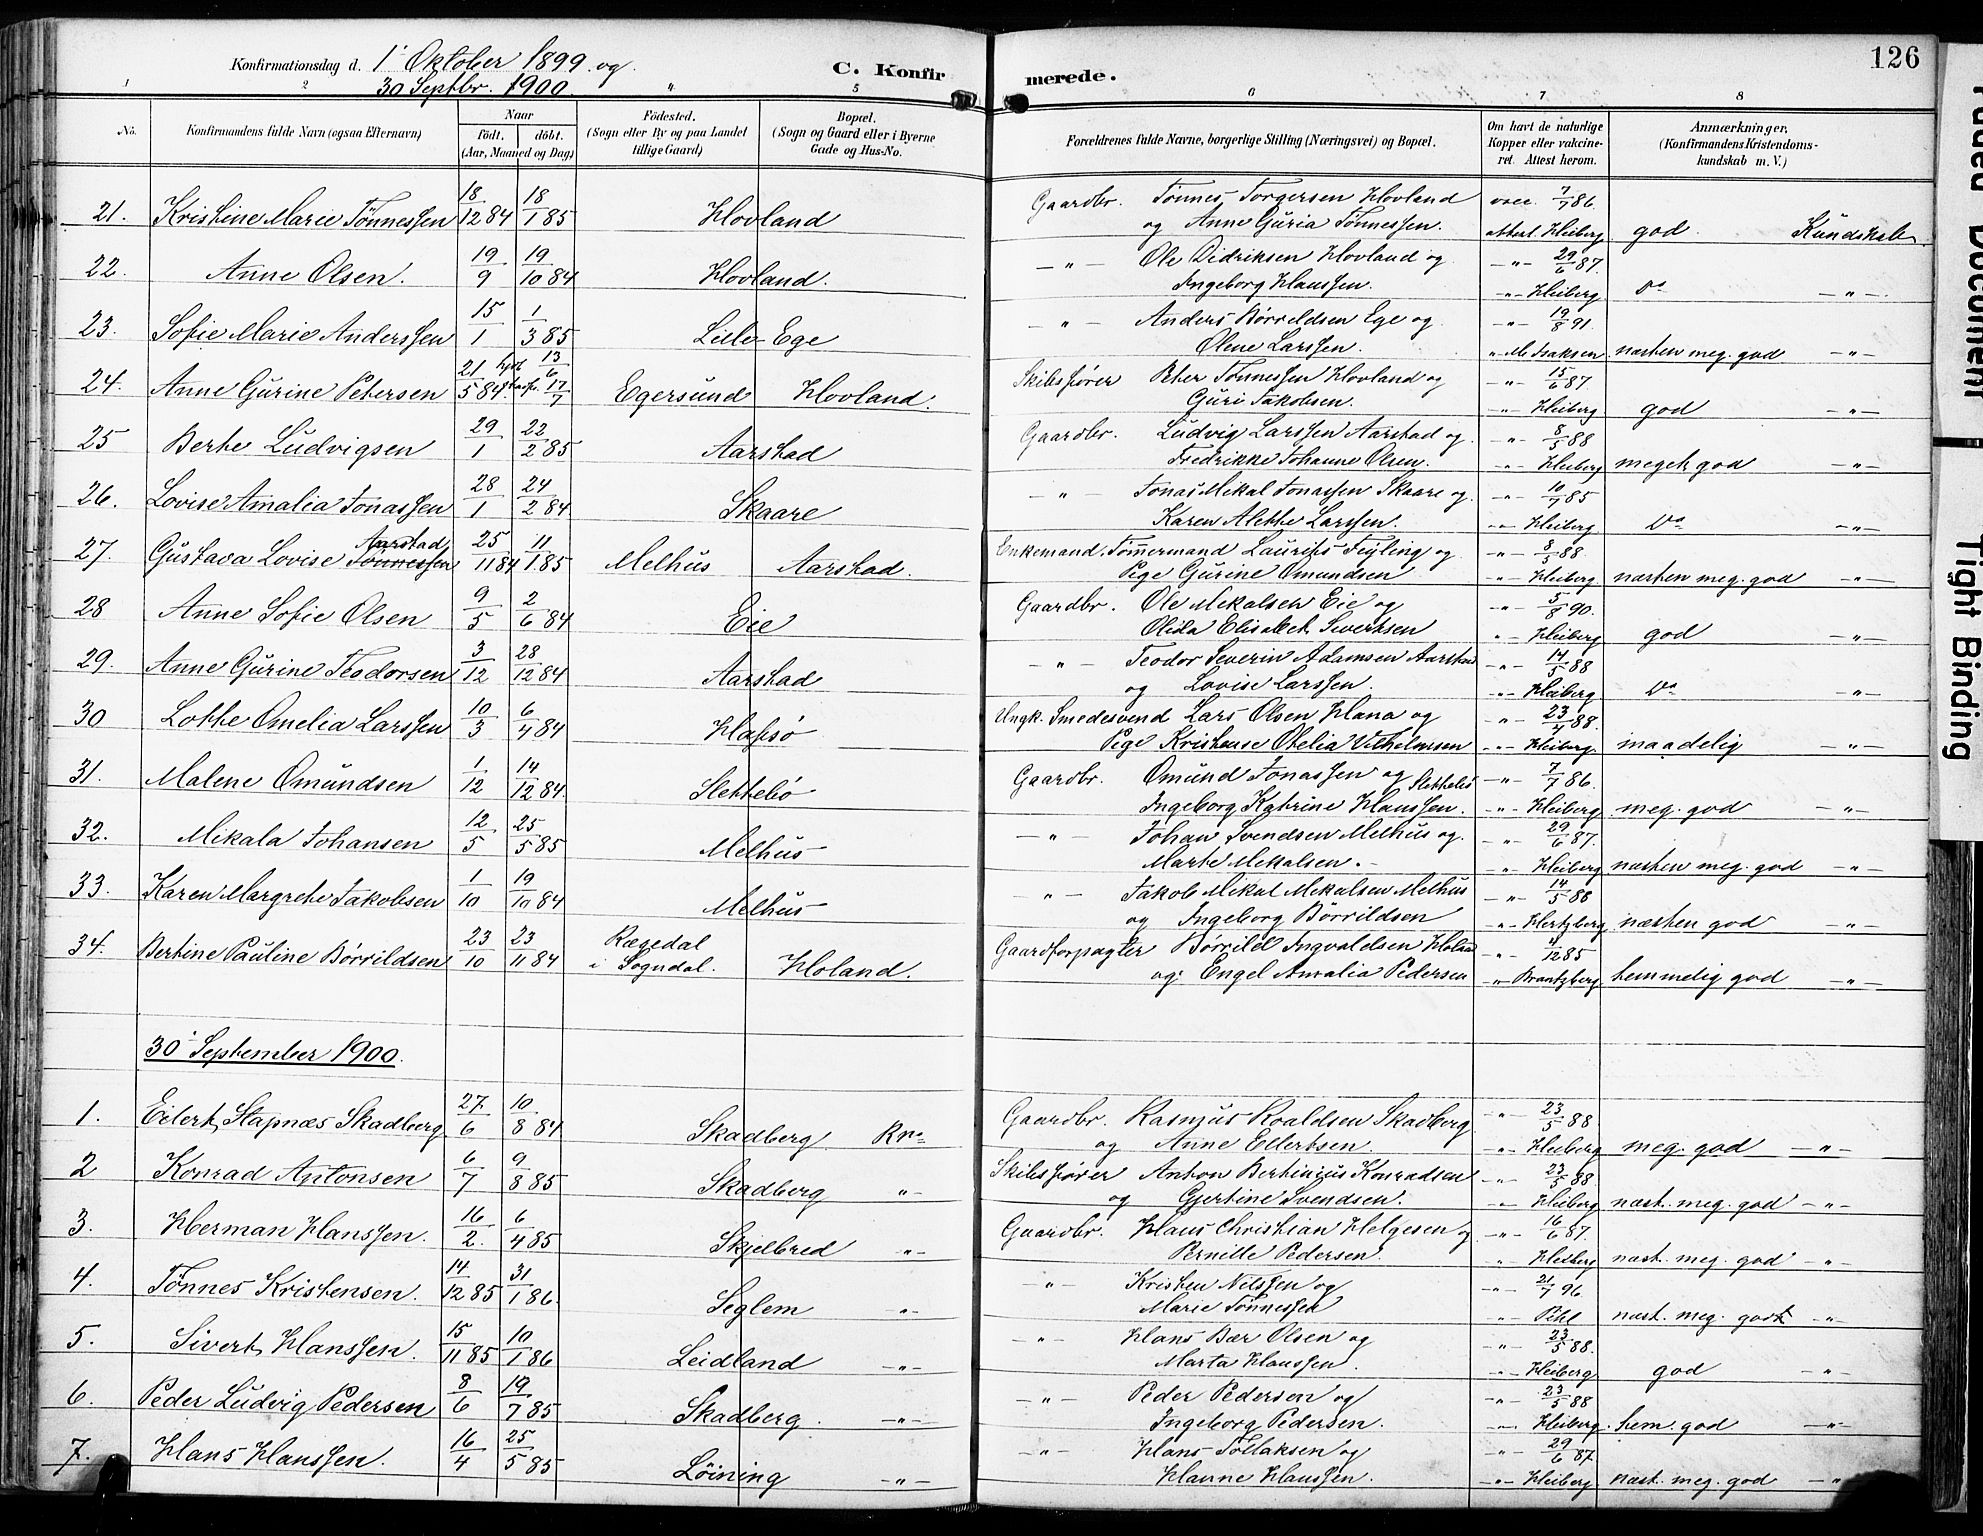 126
Konfirmationsdag d. 1' Oktober 1899 og
30 Septbr. 1900.
C. Konfirmerede.
1 2 3 4 5 6 7 8
No. Konfirmandens fulde Navn (ogsaa Efternavn) Naar født. døbt. (Aar, Maaned og Dag) Fødested. (Sogn eller By og paa Landet tillige Gaard) Bopæl. (Sogn og Gaard eller i Byerne Gade og Hus-No. Forældrenes fulde Navne, borgerlige Stilling (Næringsvei) og Bopæl. Om havt de naturlige Kopper eller vakcineret. Attest herom. Anmærkninger. (Konfirmandens Kristendomskundskab m. V.)
21. Kristine Marie Tønnessen 18/12 84 18/1 85 Hovland Gaardbr. Tønnes Torgersen Hovland vacc. 7/7 86.
og Anne Guria Tønnessen. Attest. Heiberg god. Kundskab
22. Anne Olsen. 19/9 19/10 84 Hovland. — " — Ole Didriksen Hovland og — " — 29/6 87.
Ingeborg Hanssen. — " — Heiberg Do — " —
23. Sofie Marie Anderssen 15/1 1/3 85 Lille-Ege — " — Anders Børrildsen Ege og — " — 19/8 91.
Olene Larssen. " M. Isaksen næsten meg. god — " —
24. Anne Gurine Petersen 21/5 84. hjd. 13/6 17/7 Egersund Hovland. Skibsfører Peter Tønnessen Hovland og — " — 15/6 87.
Guri Jakobsen. — " — Heiberg god — " —
25 Berte Ludvigsen 29/1 22/2 85 Aarstad Gaardbr. Ludvig Larssen Aarstad og — " — 8/5 88
Fredrikke Johanne Olsen. — " — Heiberg meget god — " —
26. Lovise Amalia Jonassen 28/1 24/2 84 Skaare — " — Jonas Mikal Jonassen Skaare og — " — 10/7 85
Karen Alette Larssen. — " — Heiberg Do — " —
27. Gustava Lovise Tønnessen Aarstad 25/11 84 11/1 85 Melhus Aarstad. Enkemand. Tømmermand Laurits Feyling og — " — 8/5 88.
Pige Gurine Omundsen — " — Heiberg næsten meg. god — " —
28 Anne Sofie Olsen 9/5 2/6 84 Eie Gaardbr. Ole Mikalsen Eie og — " — 5/8 90.
Olida Elisabet Sivertsen — " — Heiberg god — " —
29. Anne Gurine Teodorsen 3/12 28/12 84 Aarstad — " — Teodor Severin Adamsen Aarstad — " — 14/5 88
og Lovise Larssen. — " — Heiberg Do — " —
30 Lotte Omelia Larssen 10/3 6/4 84 Hafsø Ungk. Smedesvend Lars Olsen Hana og — " — 23/4 88.
Pige Kristense Otelia Vilhelmsen — " — Heiberg maadelig — " —
31. Malene Omundsen 1/12 14/12 84. Slettebø Gaardbr. Omund Jonassen og Slettebø — " — 7/7 86.
Ingeborg Katrine Hanssen. — " — Heiberg meg. god — " —
32. Mikala Johansen 12/5 25/5 85 Melhus — " — Johan Svendsen Melhus og — " — 29/6 87.
Marte Mikalsen. — " — Heiberg næsten meg. god — " —
33. Karen Margrete Jakobsen 1/10 19/10 84 Melhus — " — Jakob Mikal Mikalsen Melhus — " — 14/5 88
og Ingeborg Børrildsen — " — Hertzberg næsten god — " —
34. Bertine Pauline Børrildsen 23/10 23/11 84 Rægedal i Sogndal. Holand. Gaardforpagter Børrild Ingvaldsen Holand — " — 4/12 85
og Engel Amalia Pedersen — " — Brantzberg temmelig god — " —
30' September 1900.
1. Eilert Stapnæs Skadberg 27/6 10/8 84 Skadberg Gaardbr. Rasmus Roaldsen Skadberg — " — 23/5 88
og Anne Eilertsen. — " — Heiberg meg. god — " —
2 Konrad Antonsen 6/7 9/8 85 Skadberg " Skibsfører Anton Bertinius Konradsen — " — 23/5 88.
og Gjertine Svendsen. — " — Heiberg næst. meg. god — " —
3. Herman Hanssen. 16/2 6/4 85 Skjelbred " Gaardbr. Hans Christian Helgesen og — " — 16/6 87.
Pernille Pedersen. — " — Heiberg næst. meg. god — " —
4. Tønnes Kristensen. 14/12 85 31/1 86. Seglem " — " — Kristen Nelssen og — " — 21/7 96.
Marie Tønnessen — " — Pihl næst. meg. god — " —
5. Sivert Hanssen. 15/11 85 10/1 86 Leidland — " — — " — Hans Bær Olsen og — " — 23/5 88.
Marta Hanssen. — " — Heiberg god — " —
6. Peder Ludvig Pedersen 8/6 19/7 85 Skadberg. — " — — " — Peder Pedersen og — " — 23/5 88
Ingeborg Pedersen. — " — Heiberg. tem. god — " —
7. Hans Hanssen. 16/4 25/5 85 Løining " — " — Hans Tollaksen og — " — 29/6 87
Hanne Hanssen. — " — Heiberg næst. meg. god — " —
Faded Document
Tight Binding